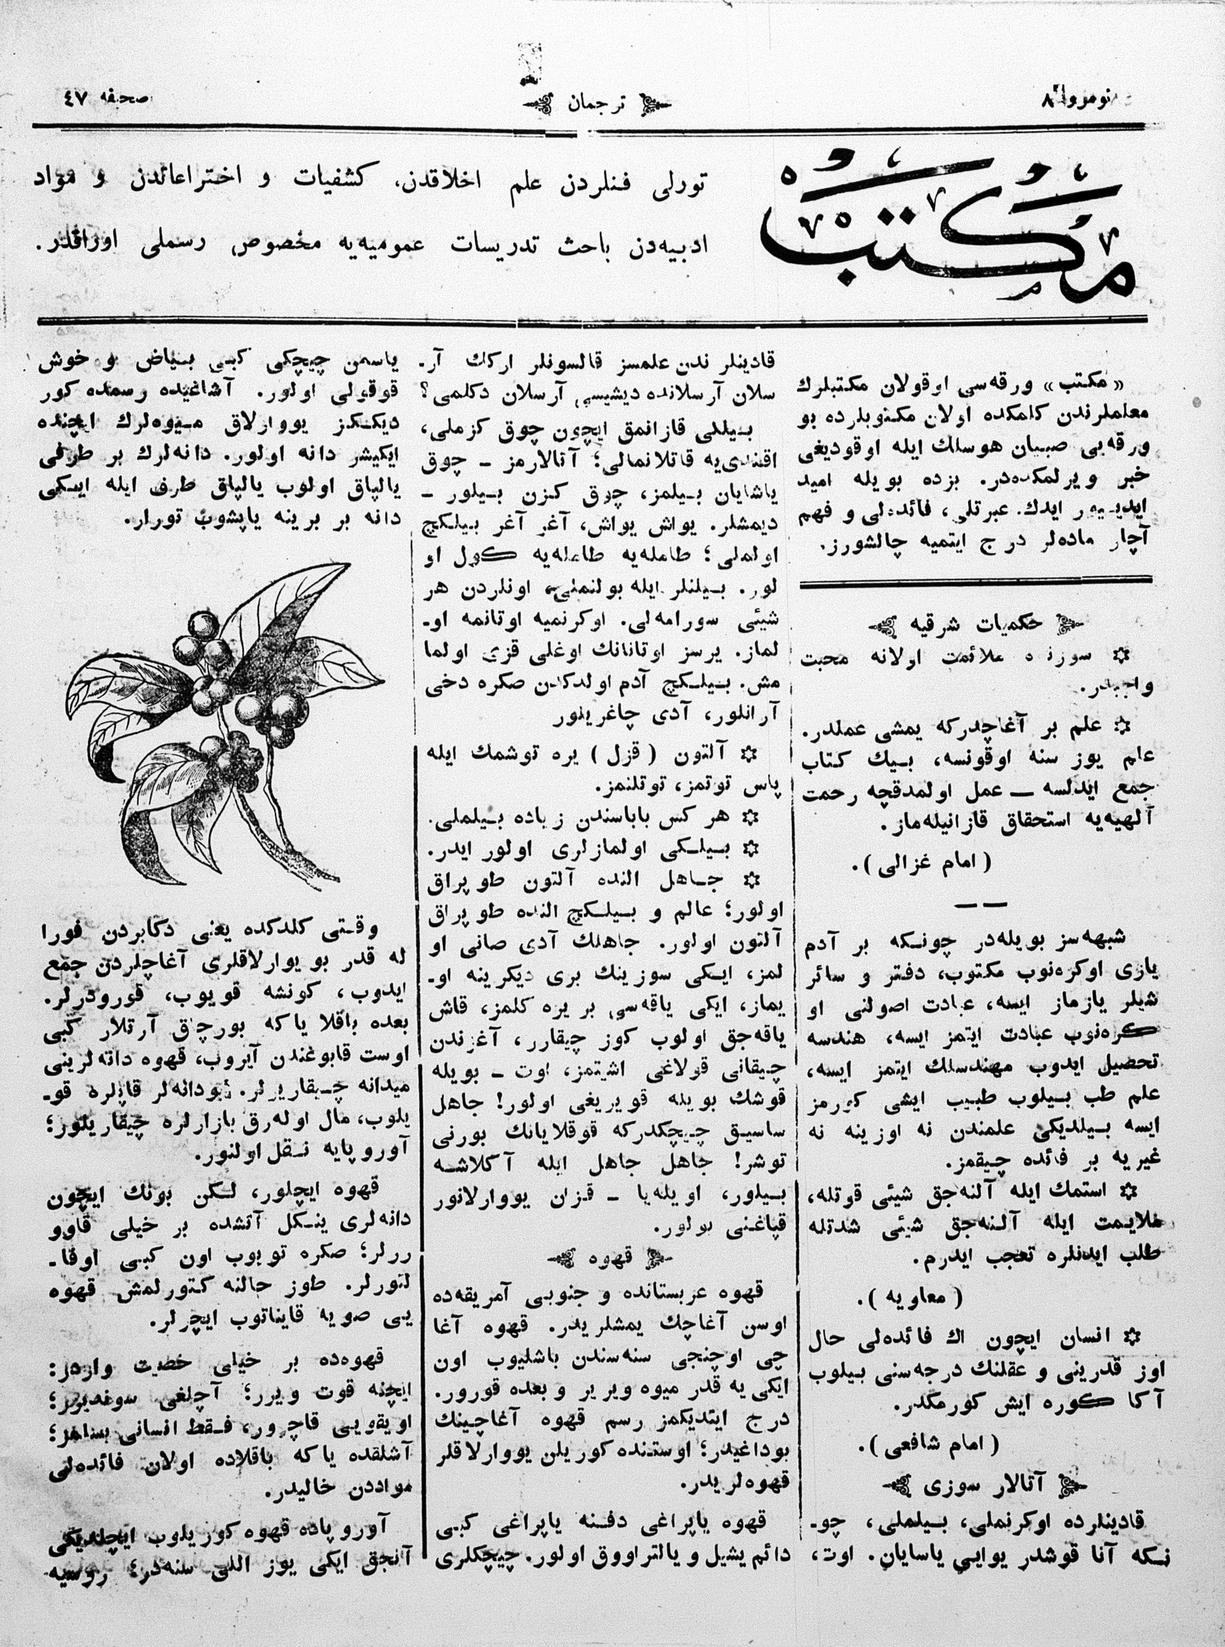 نومرو ٨
ترجمان
صحیفه ٤٧
مكتب
تورلی فنلردن علم اخلاقدن، كشفیات و اختراعاتدن و مواد
ادبیه‌دن باحث تدریسات عمومیه‌یه مخصوص رسملی اوراقدر.
«مكتب» ورقه‌سی اوقولان مكتبلرك
معلملرندن كلمكده اولان مكتوبلرده بو
ورقه‌یی صبیان هوسلك ایله اوقودیغی
خبر ویرلمكده‌در. بزده بویله امید
ایدییور ایدك. عبرتلی، فائده‌لی و فهم
آچار ماده‌لر درج ایتمیه چالشورز.
حكمیات شرقیه
سوزنده ملائمت اولانه محبت
واجبدر.
علم بر آغاچدركه یمشی عملدر.
علم یوز سنه اوقونسه، بیك كتاب
جمع ایدلسه — عمل اولمدقچه رحمت
آلهیه‌یه استحقاق قازانیله‌ماز.
(امام غزالی).
شبهه‌سز بویله‌در چونكه بر آدم
یازی اوكره‌نوب مكتوب، دفتر و سائر
شیلر یازماز ایسه، عبادت اصولنی او
كره‌نوب عبادت ایتمز ایسه، هندسه
تحصیل ایدوب مهندسلك ایتمز ایسه،
علم طب بیلوب طبیب ایشی كورمز
ایسه بیلدیكی علمندن نه اوزینه نه
غیریه بر فائده چیقمز.
استمك ایله آلنه‌جق شیئی قوتله،
ملایمت ایله آلنه‌جق شیئی شدتله
طلب ایدنلره تعجب ایدرم.
(معاویه).
انسان ایچون اك فائده‌لی حال
اوز قدرینی و عقلنك درجه‌سنی بیلوب
آكا كوره ایش كورمكدر.
(امام شافعی).
آتالار سوزی
قادینلرده اوكرنملی، بیلملی، چو-
نكه آنا قوشدر یوایی یاسایان. اوت،
قادینلر ندن علمسز قالسونلر ارك آر-
سلان آرسلانده دیشیسی آرسلان دكلمی؟
بیللی قازانمق ایچون چوق كزملی،
اقندی‌یه قاتلانمالی؛ آتالارمز - چوق
یاشایان بیلمز، چوق كزن بیلور -
دیمشلر. یواش یواش، آغر آغر بیلكیچ
اولملی؛ طامله‌یه طامله‌یه كول او
لور. بیلنلر ایله بولنملی، اونلردن هر
شیئی سورامه‌لی. اوكرنمیه اوتانمه او-
لماز. یرسز اوتانانك اوغلی قزی اولما
مش. بیلكیچ آدم اولدكدن صكره دخی
آرانلور، آدی چاغریلور
آلتون (قزل) یره توشمك ایله
پاس توتمز، توتلنمز.
هر كس باباسندن زیاده بیلملی.
بیلكی اولمازلری اولور ایدر.
جاهل النده آلتون طوپراق
اولور؛ عالم و بیلكیچ النده طوپراق
آلتون اولور. جاهلك آدی صانی او
لمز، ایكی سوزینك بری دیكرینه او-
یماز، ایكی یاقه‌سی بر یره كلمز، قاش
یاقه‌جق اولوب كوز چیقارر، آغزندن
چیقانی قولاغی اشیتمز، اوت - بویله
قوشك بویله قویریغی اولور! جاهل
ساسیق چیچكدركه قوقلایانك بورنی
توشر! جاهل جاهل ایله آكلاشه
بیلور، اویله‌یا - قزان یووارلانور
قپاغنی بولور.
قهوه
قهوه عربستانده و جنوبی آمریقه‌ده
اوسن آغاچك یمشلریدر. قهوه آغا
چی اوچنجی سنه‌سندن باشلیوب اون
ایكی یه قدر میوه ویریر و بعده قورور.
درج ایتدیكمز رسم قهوه آغاچینك
بوداغیدر؛ اوستنده كوریلن یووارلاقلر
قهوه‌لریدر.
قهوه یاپراغی دفنه یاپراغی كبی
دائم یشیل و یالتراووق اولور. چیچكلری
یاسمن چیچكی كبی بیاض و خوش
قوقولی اولور. آشاغیده رسمده كور
دیكمز یووارلاق میوه‌لرك ایچنده
ایكیشر دانه اولور. دانه‌لرك بر طرفی
یالپاق اولوب یالپاق طرف ایله ایكی
دانه بر برینه یاپشوب تورار.
وقتی كلدكده یعنی دكابردن فورا
له قدر بو یووارلاقلری آغاچلردن جمع
ایدوب، كونشه قویوب، قورودرلر.
بعده باقلا یاكه بورچاق آرتلار كبی
اوست قابوغندن آیروب، قهوه دانه‌لرینی
میدانه چیقاریرلر. بودانه‌لر قاپلره قو-
یلوب، مال اوله‌رق بازارلره چیقاریلور؛
آوروپایه نقل اولنور.
قهوه ایچلور، لكن بونك ایچون
دانه‌لری ینكل آتشده بر خیلی قاوو
ررلر؛ صكره تویوب اون كبی اوفا-
لتورلر. طوز حالنه كتورلمش قهوه
یی صویه قایناتوب ایچرلر.
قهوه‌ده بر خیلی خصیت واردر:
ایچنه قوت ویرر؛ آچلغی سوندیرر؛
اویقویی قاچرور، فقط انسانی بسلامز؛
آشلقده یاكه باقلاده اولان فائده‌لی
مواددن خالیدر.
آوروپاده قهوه كوریلوب ایچلدیكی
آنجق ایكی یوز اللی سنه‌در؛ روسیه